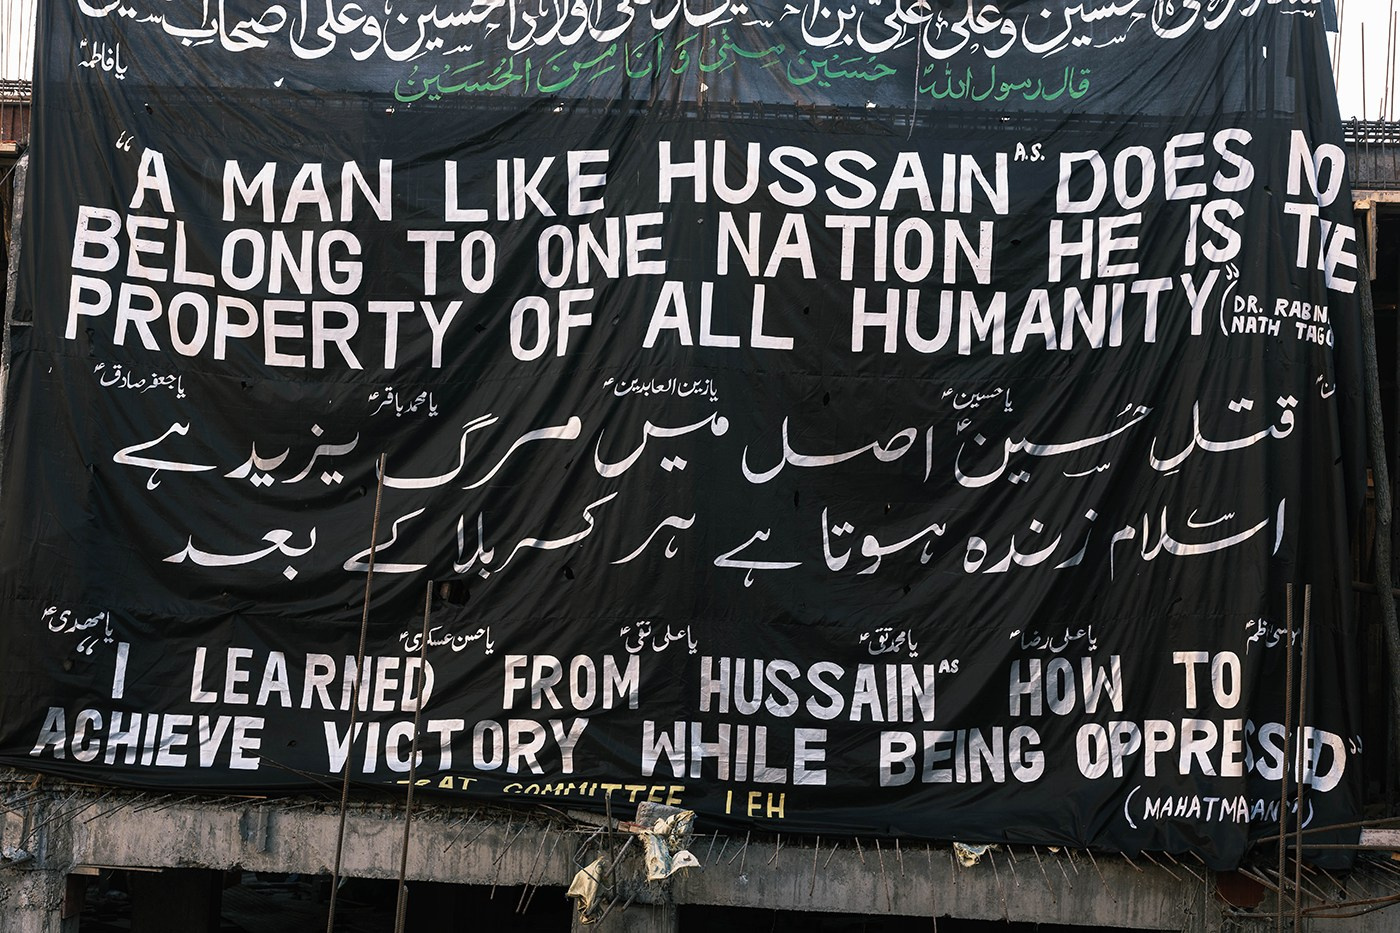 الحسین وعلی علیّ بن الحسین وعلی اولاد الحسین وعلی اصحاب
یا فاطمہؑ
قال رسول اللہؐ حُسَین مِنّی وَ اَنَا مِنَ الحُسَین
"A MAN LIKE HUSSAIN A.S. DOES NO
BELONG TO ONE NATION HE IS THE
PROPERTY OF ALL HUMANITY" (DR. RABIN
NATH TAGO
یا حسینؑ یا زین العابدینؑ یا محمد باقرؑ یا جعفر صادقؑ
قتلِ حُسینؑ اصل میں مرگ یزید ہے
اسلام زندہ ہوتا ہے ہر کربلا کے بعد
موسیٰ کاظمؑ یا علی رضاؑ یا محمد تقیؑ یا علی نقیؑ یا حسن عسکریؑ یا مھدیؑ
"I LEARNED FROM HUSSAIN AS HOW TO
ACHIEVE VICTORY WHILE BEING OPPRESSED"
(MAHATMA GANDHI)
COMMITTEE LEH